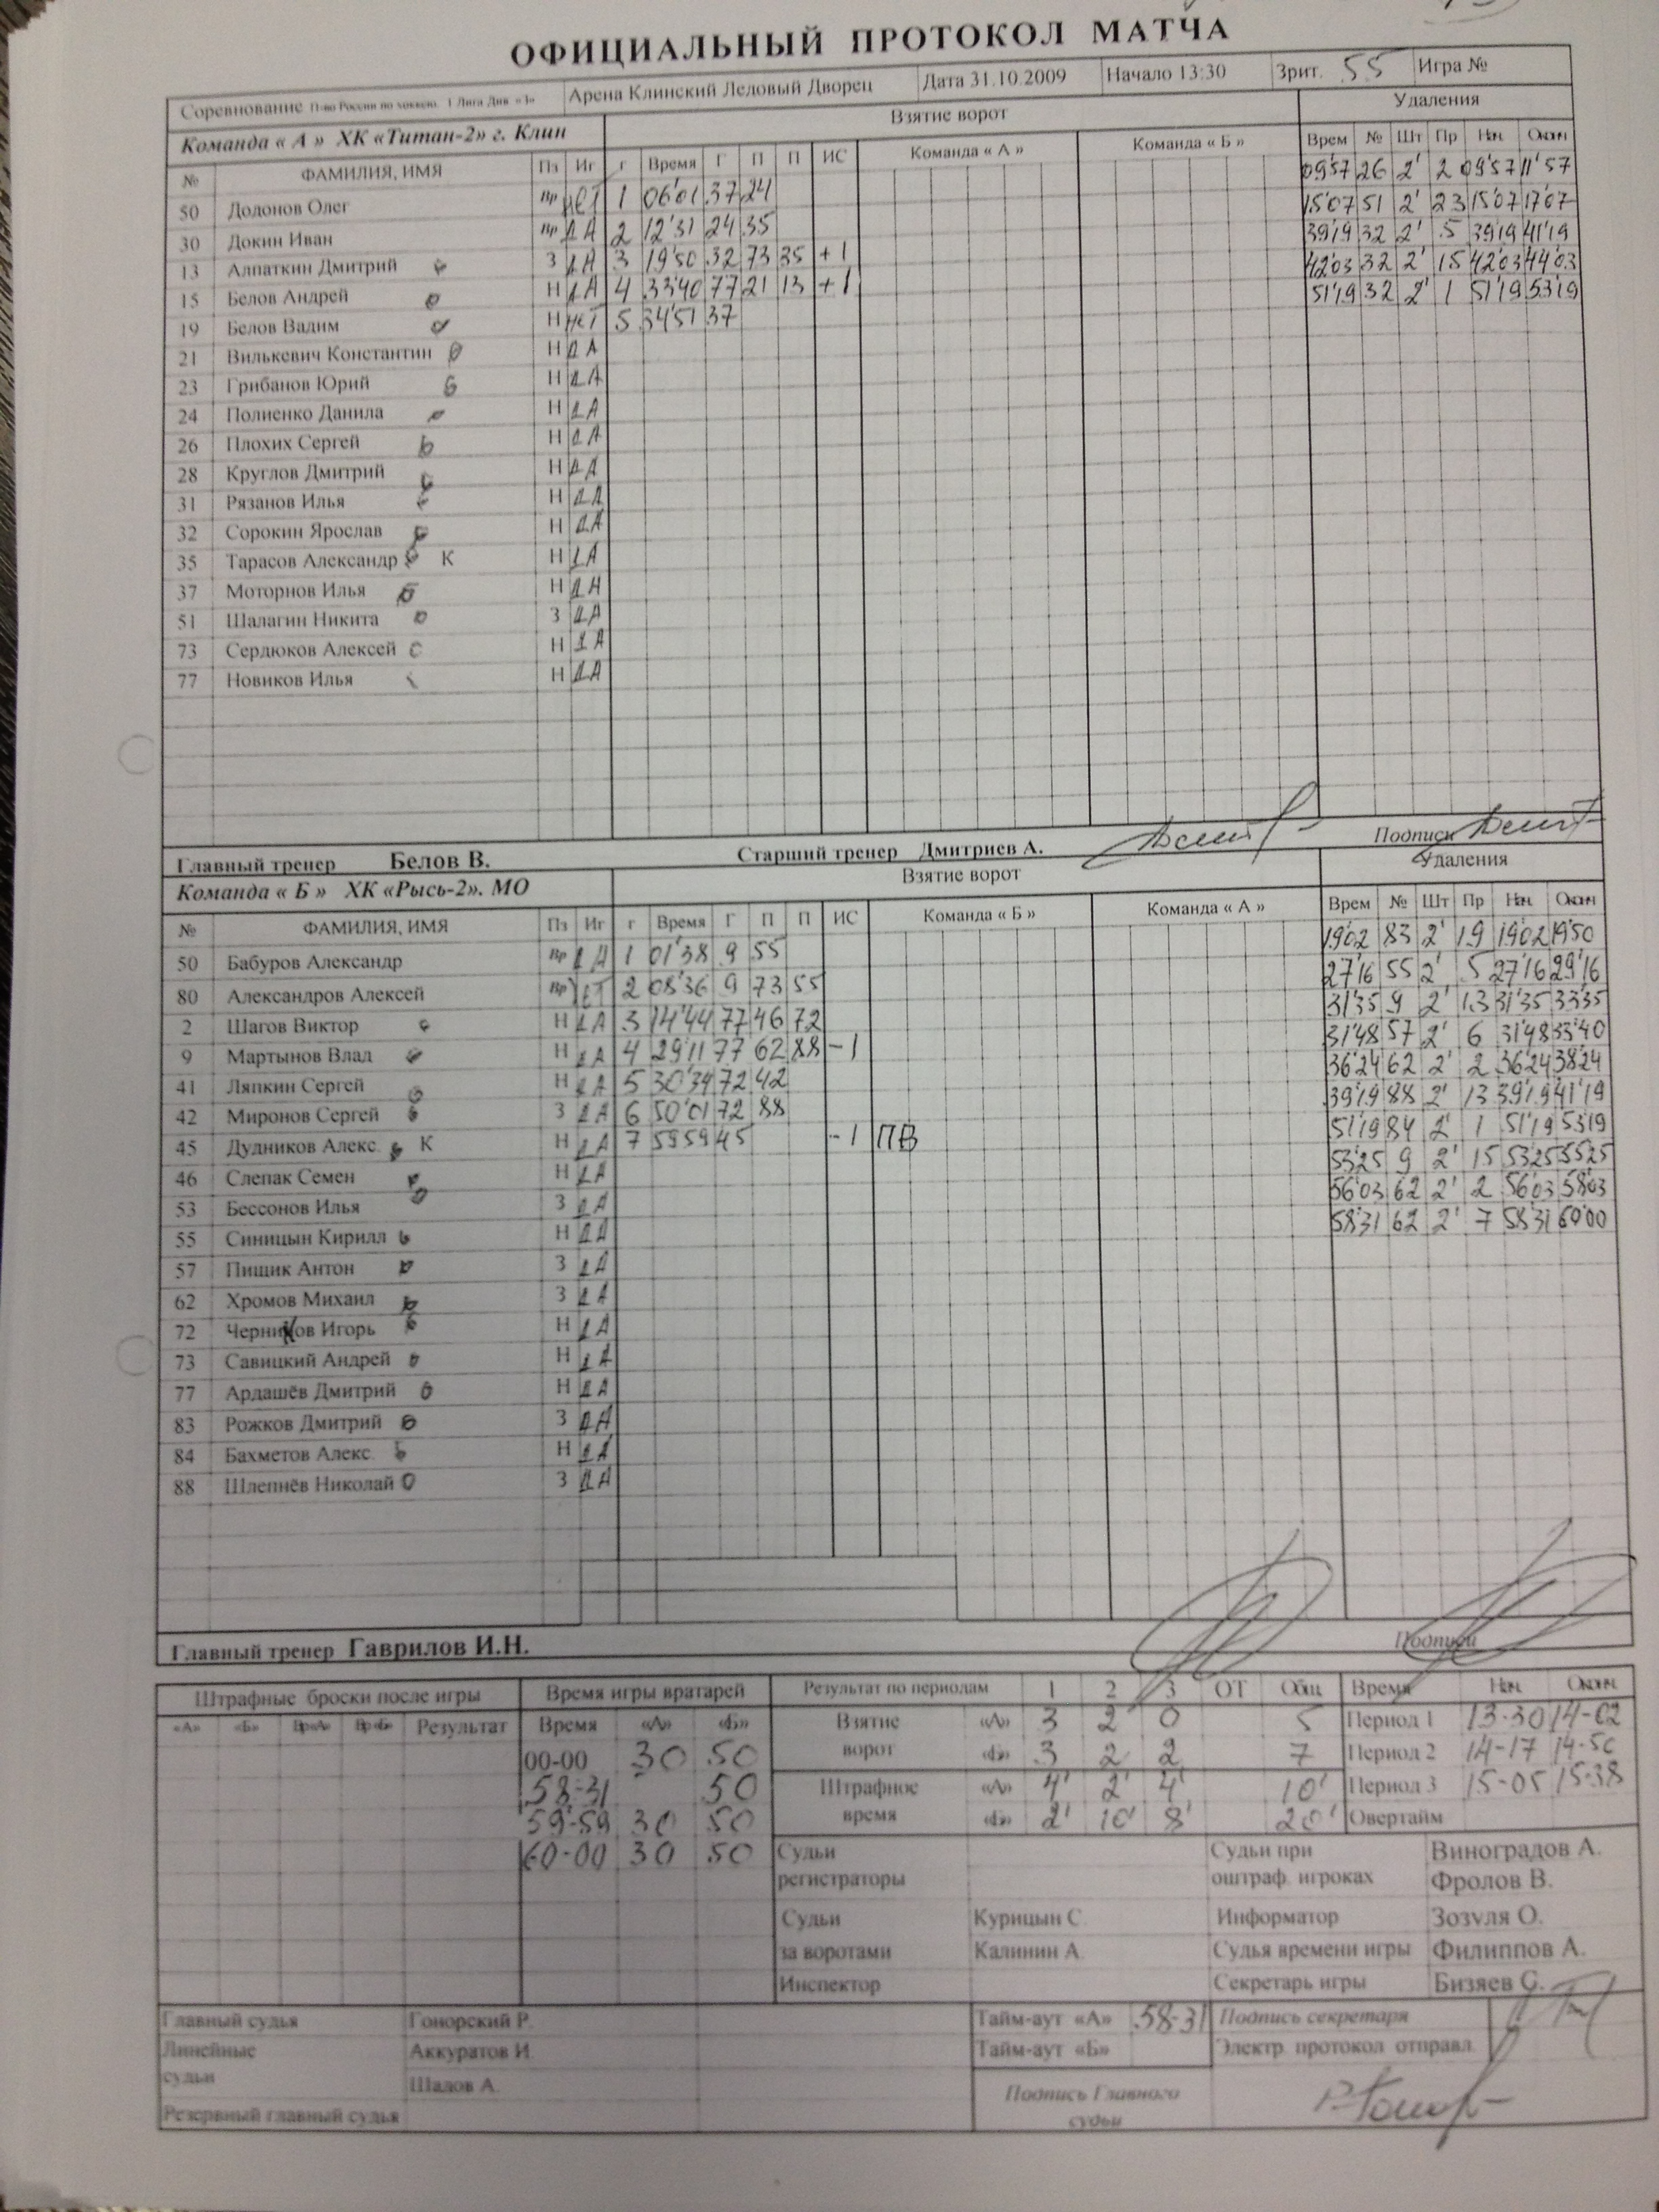 ОФИЦИАЛЬНЫЙ ПРОТОКОЛ МАТЧА
Соревнование П-во России по хоккею 1 Лига Див. «3» Арена Клинский Ледовый Дворец Дата 31.10.2009 Начало 13:30 Зрит. 55 Игра №
Команда « А » ХК «Титан-2» г. Клин Взятие ворот Удаления
№ ФАМИЛИЯ, ИМЯ Пз Иг г Время Г П П ИС Команда « А » Команда « Б » Врем № Шт Пр Нач Оконч
50 Долонов Олег Вр НЕТ 1 06'01 37 24 09'57 26 2' 2 09'57 11'57
30 Докин Иван Вр ДА 2 12'31 24 35 15'07 51 2' 23 15'07 17'07
13 Алпаткин Дмитрий З ДА 3 19'50 32 73 35 +1 39'19 32 2' 5 39'19 41'19
15 Белов Андрей Н ДА 4 33'40 77 21 13 +1 42'03 32 2' 15 42'03 44'03
19 Белов Вадим Н НЕТ 5 34'51 37 51'19 32 2' 1 51'19 53'19
21 Вилькевич Константин Н ДА
23 Грибанов Юрий Н ДА
24 Полиенко Данила Н ДА
26 Плохих Сергей Н ДА
28 Круглов Дмитрий Н ДА
31 Рязанов Илья Н ДА
32 Сорокин Ярослав Н ДА
35 Тарасов Александр К Н ДА
37 Моторнов Илья Н ДА
51 Шалагин Никита З ДА
73 Сердюков Алексей Н ДА
77 Новиков Илья Н ДА
Главный тренер Белов В. Старший тренер Дмитриев А. Подписи
Команда « Б » ХК «Рысь-2». МО Взятие ворот Удаления
№ ФАМИЛИЯ, ИМЯ Пз Иг г Время Г П П ИС Команда « Б » Команда « А » Врем № Шт Пр Нач Оконч
50 Бабуров Александр Вр ДА 1 01'38 9 55 19'02 83 2' 19 19'02 19'50
80 Александров Алексей Вр НЕТ 2 08'36 9 73 55 27'16 55 2' 5 27'16 29'16
2 Шагов Виктор Н ДА 3 14'44 77 46 72 31'35 9 2' 13 31'35 33'35
9 Мартынов Влад Н ДА 4 29'11 77 62 88 -1 31'48 57 2' 6 31'48 33'40
41 Ляпкин Сергей Н ДА 5 30'34 72 42 36'24 62 2' 2 36'24 38'24
42 Миронов Сергей З ДА 6 50'01 72 88 39'19 88 2' 13 39'19 41'19
45 Дудников Алекс. К Н ДА 7 59'59 45 -1 ПВ 51'19 84 2' 1 51'19 53'19
46 Слепак Семен Н ДА 53'25 9 2' 15 53'25 55'25
53 Бессонов Илья З ДА 56'03 62 2' 2 56'03 58'03
55 Синицын Кирилл Н ДА 58'31 62 2' 7 58'31 60'00
57 Пищик Антон З ДА
62 Хромов Михаил З ДА
72 Черников Игорь Н ДА
73 Савицкий Андрей Н ДА
77 Ардашёв Дмитрий Н ДА
83 Рожков Дмитрий З ДА
84 Бахметов Алекс. Н ДА
88 Шлепнёв Николай З ДА
Главный тренер Гаврилов И.Н. Подписи
Штрафные броски после игры Время игры вратарей Результат по периодам 1 2 3 ОТ Общ Время Нач Оконч
«А» «Б» Вр«А» Вр«Б» Результат Время «А» «Б» Взятие «А» 3 2 0 5 Период 1 13-30 14-02
00-00 30 50 ворот «Б» 3 2 2 7 Период 2 14-17 14-50
58-31 50 Штрафное «А» 4' 2' 4' 10' Период 3 15-05 15-38
59-59 30 50 время «Б» 2' 10' 8' 20' Овертайм
60-00 30 50 Судьи Судьи при Виноградов А.
регистраторы оштраф. игроках Фролов В.
Судьи Курицын С. Информатор Зозуля О.
за воротами Калинин А. Судья времени игры Филиппов А.
Инспектор Секретарь игры Бизяев С.
Главный судья Гонорский Р. Тайм-аут «А» 58-31 Подпись секретаря
Линейные Аккуратов И. Тайм-аут «Б» Электр. протокол отправл.
судьи Шалов А. Подпись Главного
Резервный главный судья судьи